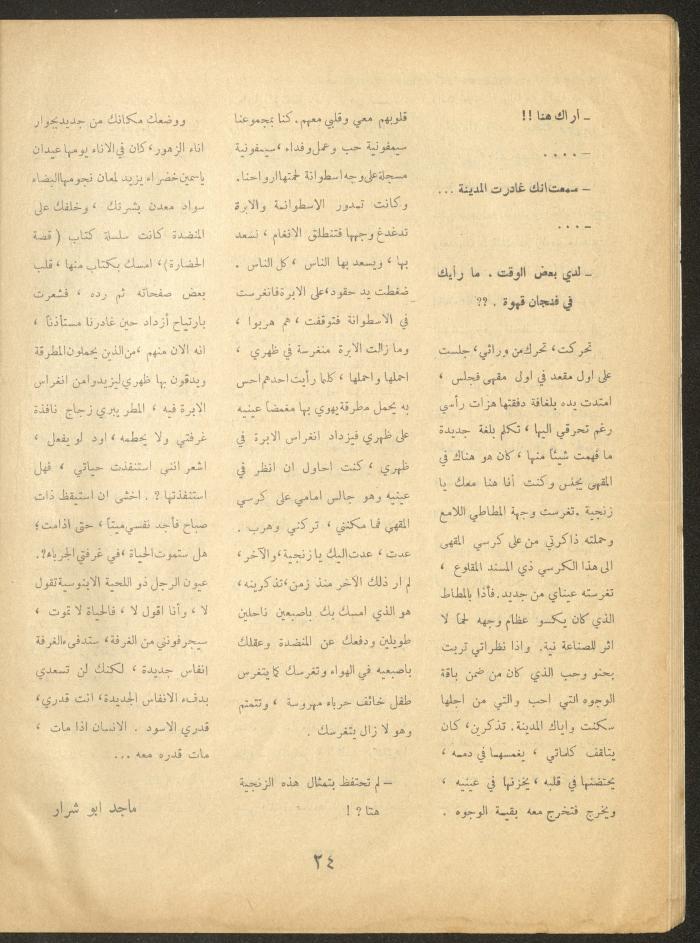 ـ أراك هنا !!
ـ ....
ـ سمعت انك غادرت المدينة ...
ـ ...
ـ لدي بعض الوقت . ما رأيك
في فنجان قهوة . ??
تحركت، تحرك من ورائي، جلست
على اول مقعد في اول مقهى فجلس ،
امتدت يده بلفافة دفقتها هزات رأسي
رغم تحرقي اليها ، تكلم بلغة جديدة
ما فهمت شيئاً منها ، كان هو هناك في
المقهى يجلس وكنت أنا هنا معك يا
زنجية . تغرست وجهة المطاطي اللامع
وحملته ذاكرتي من على كرسي المقهى
الى هذا الكرسي ذي المسند المقلوع ،
تغرسته عيناي من جديد. فأذا بالمطاط
الذي كان يكسو عظام وجهه لحما لا
اثر للصناعة فيه . واذا نظراتي تربت
بحنو وحب الذي كان من ضمن باقة
الوجوه التي احب والتي من اجلها
سكنت واياك المدينة . تذكرين، كان
يتلقف كلماتي ، يغمسها في دمه ،
يحتضنها في قلبه ، يخزنها في عينيه ،
ويخرج فتخرج معه بقية الوجوه .
قلوبهم معي وقلبي معهم . كنا بمجموعنا
سيمفونية حب وعمل وفداء ، سيمفونية
مسجلة على وجه اسطوانة لحمتها ارواحنا.
وكانت تدور الاسطوانة والابرة
تدغدغ وجهها فتنطلق الانغام ، نسعد
بها ، ويسعد بها الناس ، كل الناس .
ضغطت يد حقود، على الابرة فانغرست
في الاسطوانة فتوقفت ، هم هربوا ،
وما زالت الابرة منغرسة في ظهري ،
احملها واحملها ، كلما رأيت احدهم احس
به يحمل مطرقة يهوي بها مغمضاً عينيه
على ظهري فيزداد انغراس الابرة في
ظهري ، كنت احاول ان انظر في
عينيه وهو جالس امامي على كرسي
المقهى فما مكنني ، تركني وهرب .
عدت ، عدت اليك يا زنجية، والآخر،
لم ار ذلك الآخر منذ زمن، تذكرينه،
هو الذي امسك بك باصبعين ناحلين
طويلين ودفعك عن المنضدة وعقلك
باصبعيه في الهواء وتغرسك كما يتغرس
طفل خائف حرباء مهروسة ، وتتمتم
وهو لا زال يتغرسك .
ـ لم تحتفظ بتمثال هذه الزنجية
هنا ? !
ووضعك مكانك من جديد بجوار
اناء الزهور ، كان في الاناء يومها عيدان
ياسمين خضراء يزيد لمعان نجومها البيضاء
سواد معدن بشرتك ، وخلفك على
المنضدة كانت سلسلة كتاب ( قصة
الحضارة )، امسك بكتاب منها ، قلب
بعض صفحاته ثم رده ، فشعرت
بارتياح أزداد حين غادرنا مستأذناً ،
انه الان منهم ، من الذين يحملون المطرقة
ويدقون بها ظهري ليزيدوا من انغراس
الابرة فيه ، المطر يبري زجاج نافذة
غرفتي ولا يحطمه ، اود لو يفعل ،
اشعر انني استنفذت حياتي ، فهل
استنفذتها ? . اخشى ان استيقظ ذات
صباح فأجد نفسي ميتاً ، حتى اذا مت ،
هل ستموت الحياة ، في غرفتي الجرباء ?.
عيون الرجل ذو اللحية الابنوسية تقول
لا ، وأنا اقول لا ، فالحياة لا تموت ،
سيجرفونني من الغرفة ، ستدفىء الغرفة
انفاس جديدة ، لكنك لن تسعدي
بدفء الانفاس الجديدة ، انت قدري ،
قدري الاسود . الانسان اذا مات ،
مات قدره معه ...
ماجد ابو شرار
٢٤